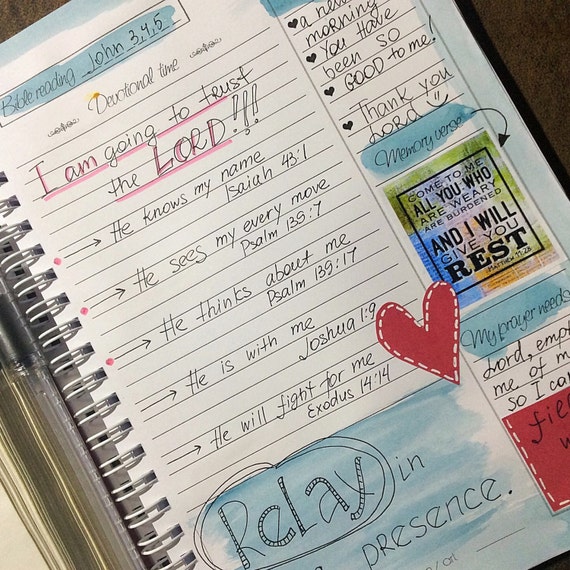 Bible reading John 3,4,5
Devotional time
I am going to trust
the LORD!!!
→ He knows my name
Isaiah 43:1
→ He sees my every move
Psalm 139:7
→ He thinks about me
Psalm 139:17
→ He is with me
Joshua 1:9
→ He will fight for me
Exodus 14:14
ReLAY in
presence.
a new
morning
♥ You have
been so
♥ GOOD to me!
♥ Thank you
Lord
Memory verse
COME TO ME
ALL YOU WHO
ARE WEARY
ARE BURDENED
AND I WILL
GIVE YOU
REST
MATTHEW 11:28
My prayer needs
Lord, empt
me of m
so I ca
fill
w